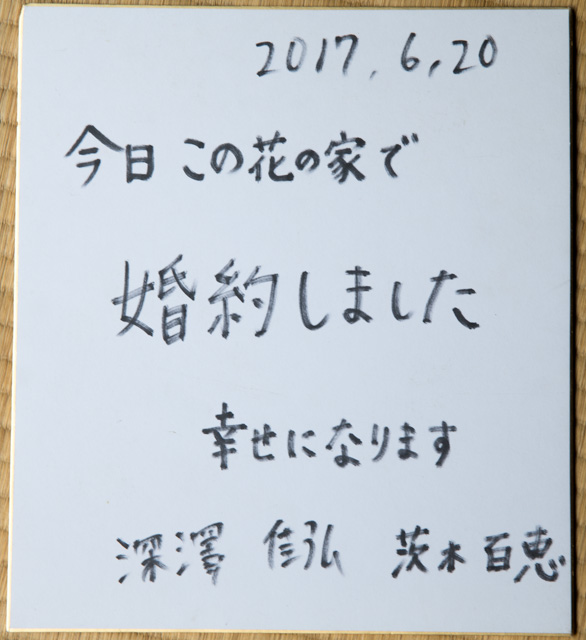 2017.6.20
今日この花の家で
婚約しました
幸せになります
深澤 信弘 茨木百恵